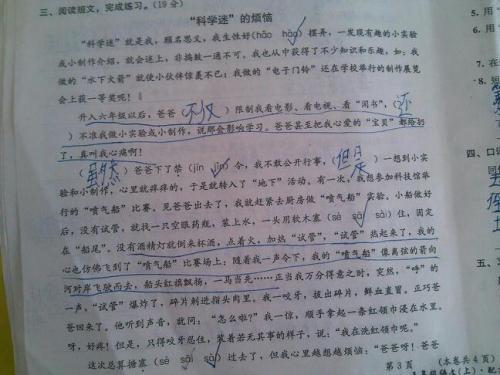 三、阅读短文,完成练习。(19分)
“科学迷”的烦恼
“科学迷”就是我,顾名思义,我生性好(hǎo hào)摆弄,一发现有趣的小实验
或小制作介绍,就会迷上,非捣鼓一通不可。我也从中获得了不少知识和乐趣,如:我
做的“水下火箭”就使小伙伴惊羡不已;我做的“电子门铃”还在学校举行的制作展览
会上获一等奖呢!
升入六年级以后,爸爸(不仅)限制我看电影、看电视、看“闲书”,(还
)不准我做小实验或小制作,说那会影响学习。爸爸甚至把我心爱的“宝贝”都给扔
了,真叫我心痛啊!
(虽然)爸爸下了禁(jīn jìn)令,我不敢公开行事,(但是)一想到小实
验和小制作,心里就痒痒的,于是就转入了“地下”活动。有一次,我想参加科技馆举
行的“喷气船”比赛,见爸爸出去了,我就赶紧去厨房做“喷气船”实验。小船做好
后,没有试管,就找一只空眼药瓶,装上水,一头用软木塞(sè sāi sài)住,固定
在“船尾”。没有酒精灯就倒来杯酒,点着火,加热“试管”,“试管”热起来了,我的
心也仿佛飞到了“喷气船”比赛场上;随着我一声令下,我的“喷气船”像离弦的箭向
河对岸飞驶而去,船头红旗飘扬,一马当先……正当我万分得意之时,突然,“呼”的
一声,“试管”爆炸了,碎片刺进指头肉里。我一咬牙,拔出碎片,鲜血直冒。正巧爸
爸回来了。他听到声音,就问:“怎么啦?”我一惊,顺手拿起一条红领巾浸在水里。
呀,好疼!但是,只得咬牙忍住,装着若无其事的样子,说:“我在洗红领巾呢。”
这次总算搪塞(sè sāi sài)过去了,但我心里越想越烦恼:“爸爸呀!爸爸
第3页 (本卷共4页)
5. 用“
6. 用
7. 在
8.
四、口